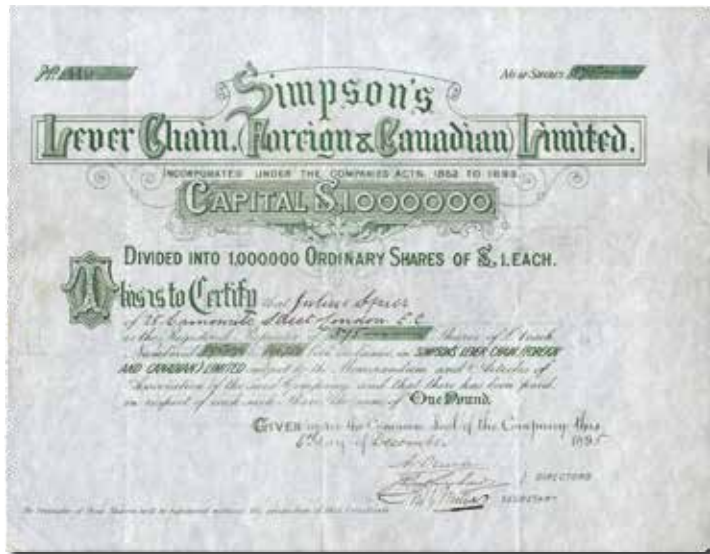 No. of Shares
Simpson's
Lever Chain, (Foreign & Canadian) Limited.
INCORPORATED UNDER THE COMPANIES ACTS, 1862 TO 1893
CAPITAL £1,000000
DIVIDED INTO 1,000000 ORDINARY SHARES OF £1. EACH.
This is to Certify that Julius
of Street London E.C.
is the Registered Proprietor of 375 Shares of £1 each
Numbered to both inclusive, in SIMPSONS LEVER CHAIN, (FOREIGN
AND CANADIAN) LIMITED subject to the Memorandum and Articles of
Association of the said Company and that there has been paid
in respect of each such Share the sum of One Pound.
GIVEN under the Common Seal of the Company this
6th day of December 1895
DIRECTORS
SECRETARY
No Transfer of these Shares will be registered without the production of this Certificate.